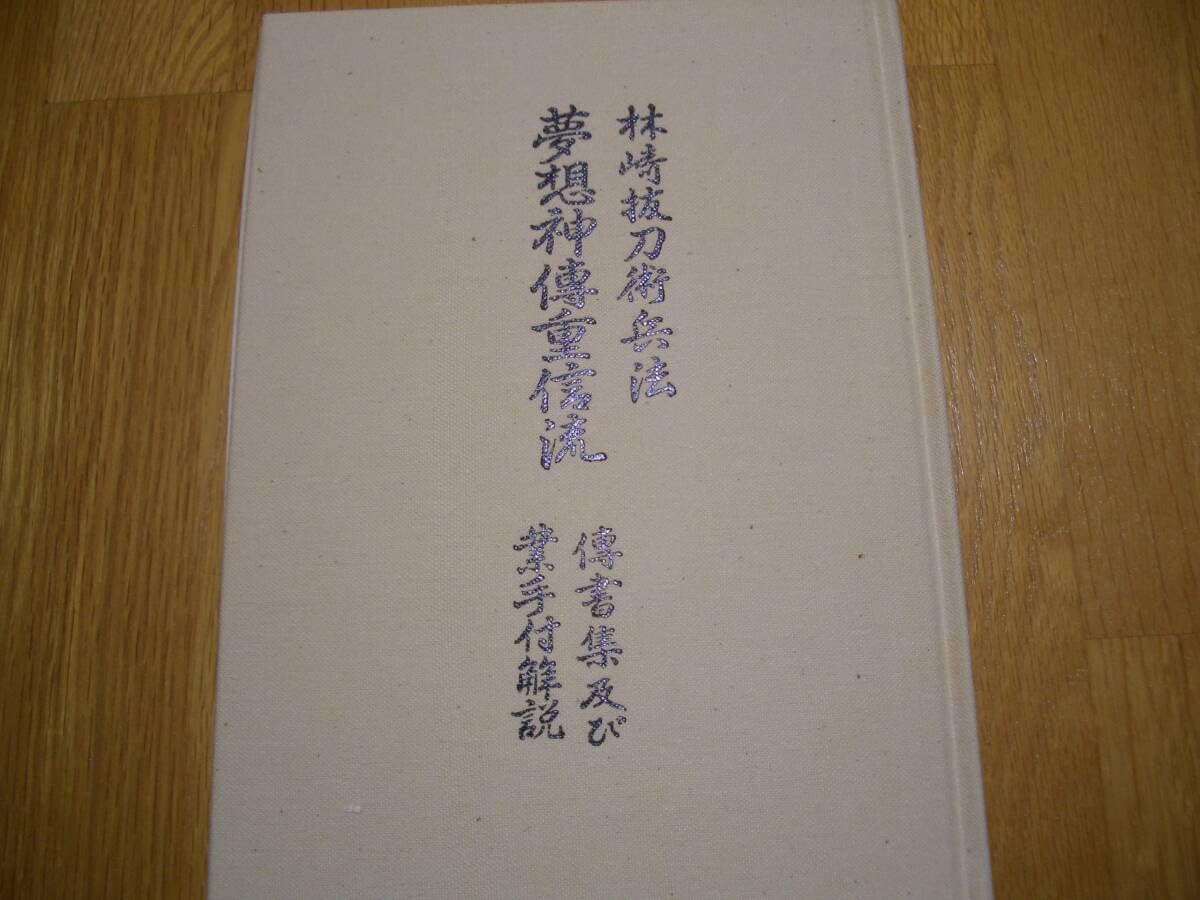 林崎抜刀術兵法
夢想神傳重信流
傳書集及び
業手付解説